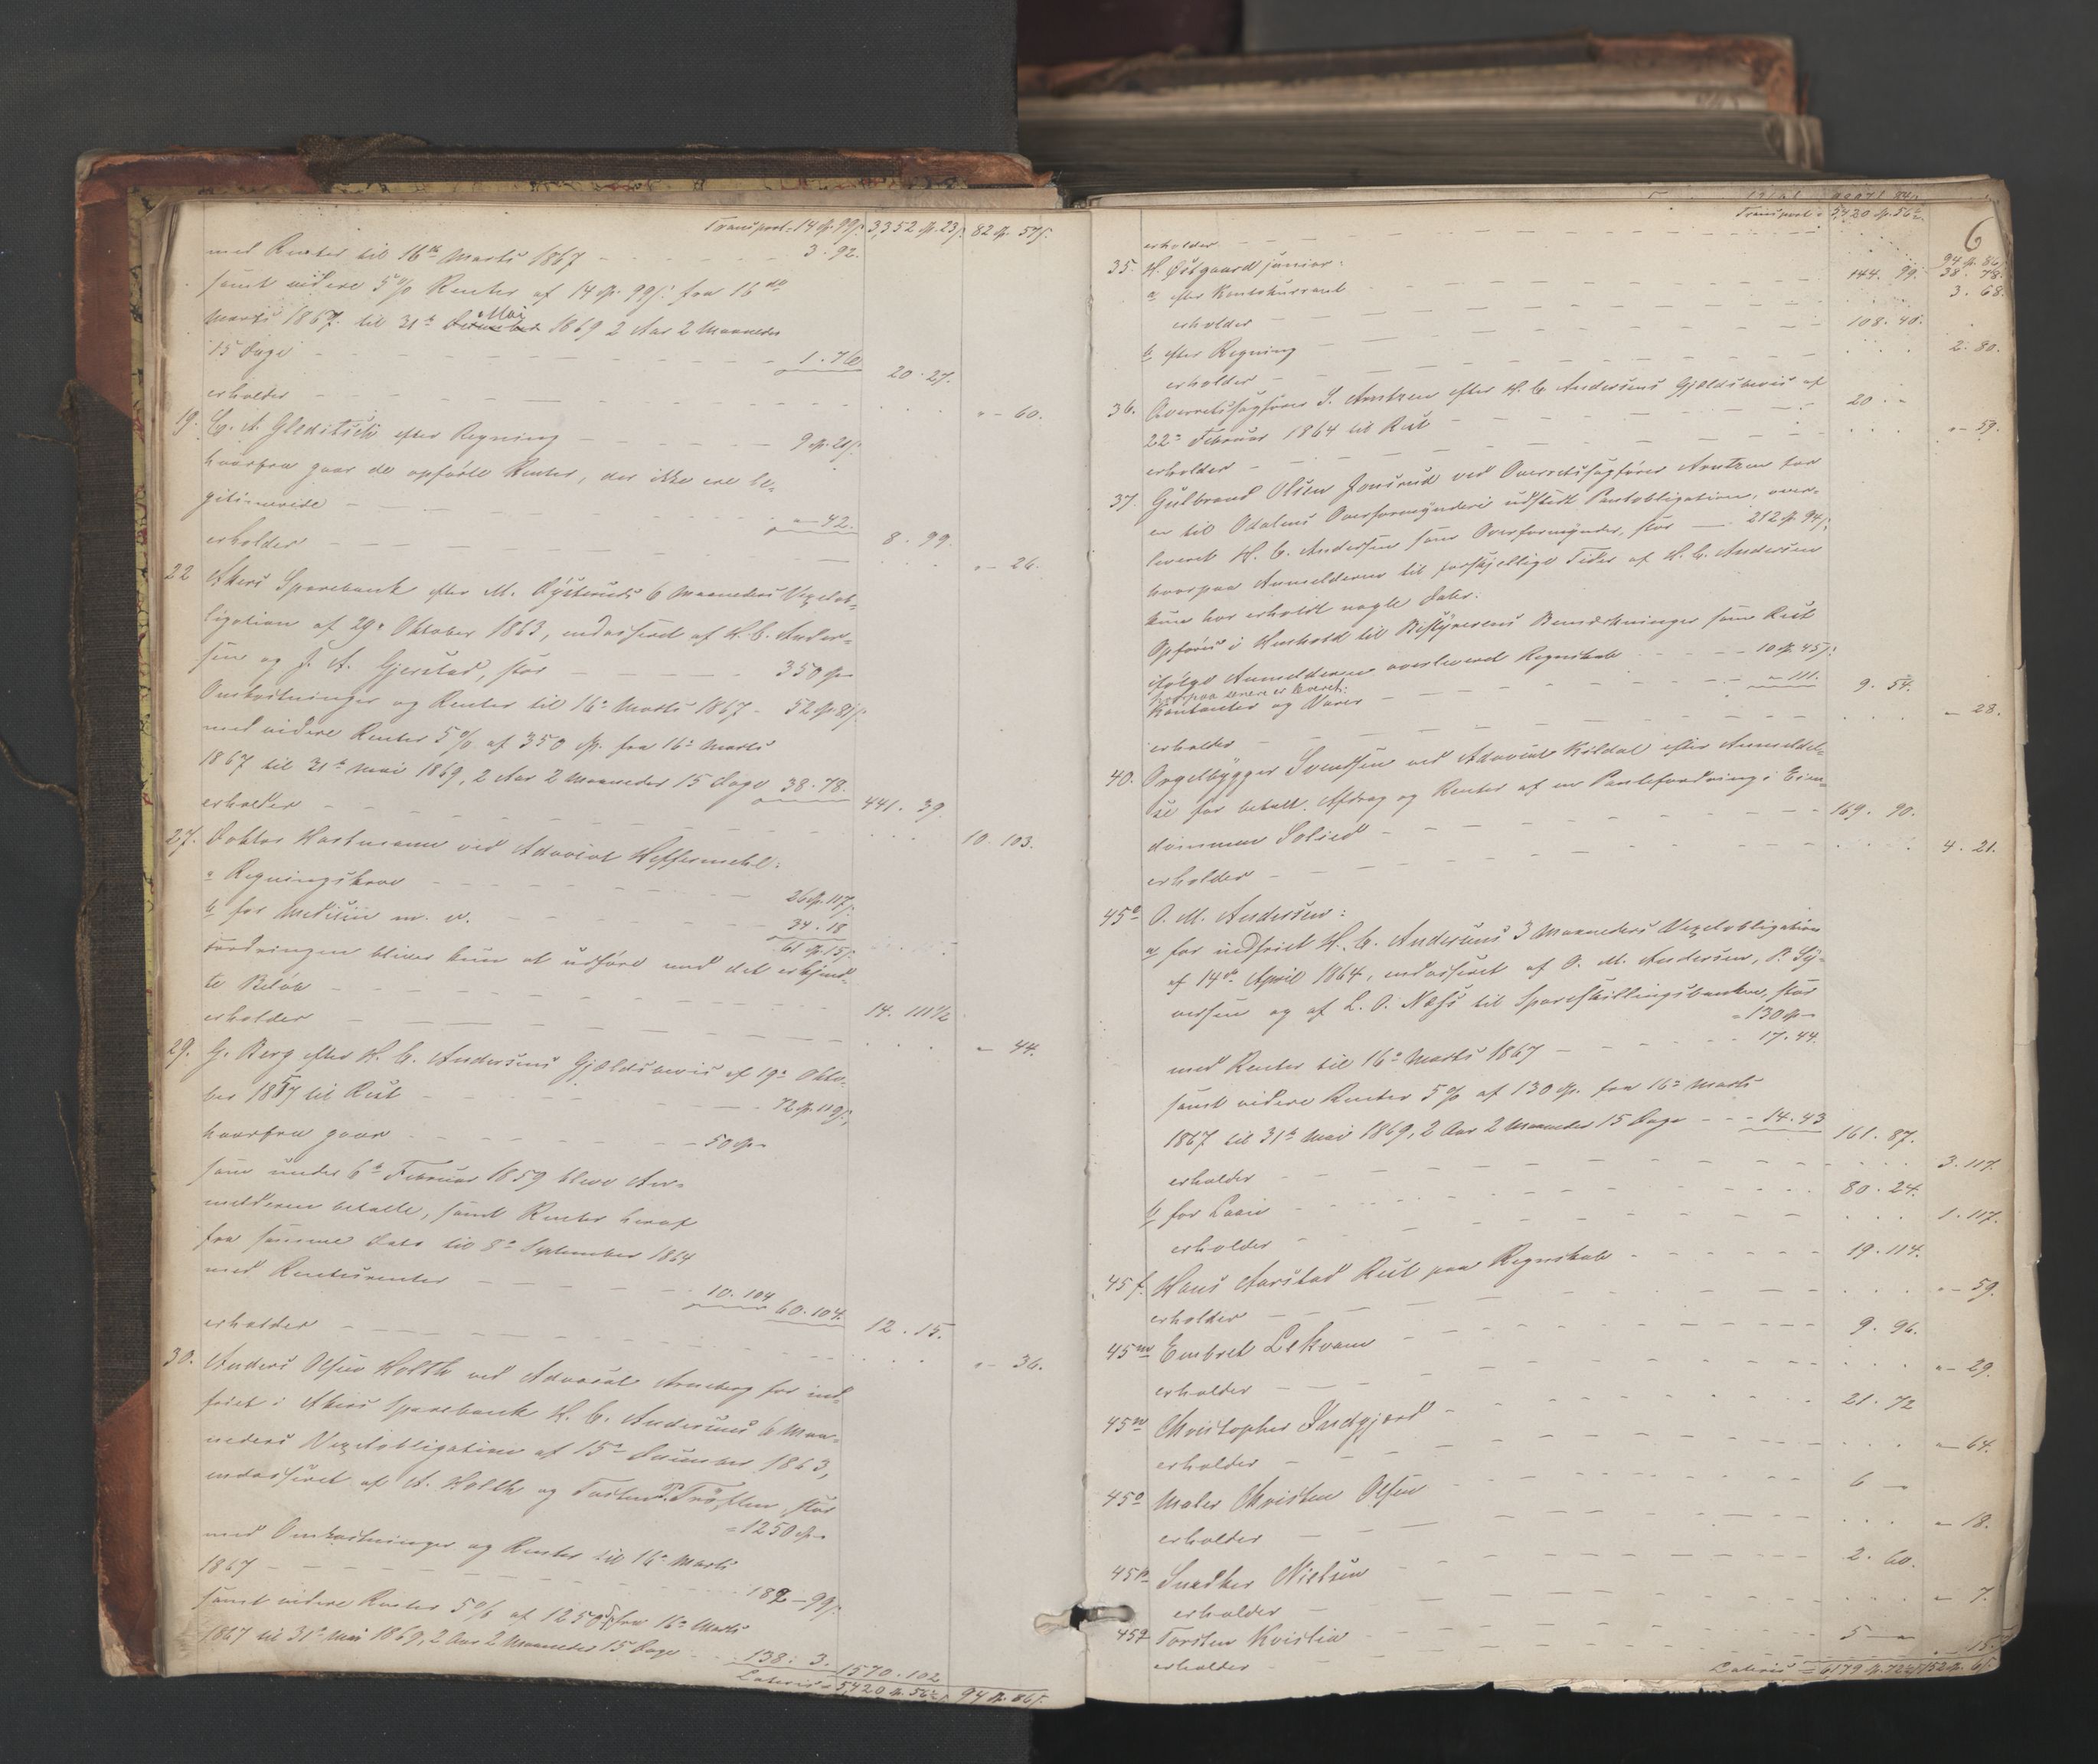 Transport = 14 Sp. 99 s. 3,352 Sp. 23 s. 82 Sp. 57 s.
med Renter til 16de Marts 1867 - - - - 3 . 92.
samt videre 5 % Renter af 14 Sp. 99 s. fra 16de
Marts 1867 til 31te Mai 1869 2 Aar 2 Maaneder
15 Dage - - - - 1 . 76 20 . 27.
erholder - - - - " - 60.
19. C. A. Gleditsch efter Regning - - - - 9 Sp. 21 s.
hvorfra gaar de opførte Renter, der ikke ere le-
gitimerede - - - - " - 42. 8 . 99.
erholder - - - - " - 26.
22 Akers Sparebank efter M. 6 Maaneders Vexelob-
ligation af 29. Oktober 1863, endosseret af H. C. Ander-
sen og J. A. Gjerstad, stor - - - - 350 Sp -
Omkostninger og Renter til 16. Marts 1867 - 52 Sp. 81 s.
med videre Renter 5 % af 350 Sp. fra 16. Marts
1867 til 31te Mai 1869, 2 Aar 2 Maaneder 15 Dage 38 . 78. 441 . 39.
erholder - - - - 10 . 103.
27. Doktor Hartmann ved Advocat Heffermehl:
a Regningskrav - - - - 26 Sp. 117 s.
b for Medicin m. v. - - - - 34 . 18
61 Sp. 15 s.
Fordringen bliver kun at udføre med det erkjend-
te Beløb - - - - 14 . 111½
erholder - - - - " - 44.
29. G. Berg efter H. C. Andersens Gjældsbevis af 19. Okto-
ber 1857 til Rest - - - - 72 Sp. 119 s.
hvorfra gaar - - - - 50 Sp -
som under 6te Februar 1859 blev An-
melderen betalte, samt Renter heraf
fra samme Dato til 8. September 1864
med Rentesrenter - - - - 10 . 104 60 . 104. 12 . 15.
erholder - - - - " - 36.
30. Anders Olsen Holth ved Advocat Arneberg for ind-
friet i Akers Sparebank H. C. Andersens 6 Maa-
neders Vexelobligation af 15. December 1863,
endosseret af A. Holth og Torsten P. stor
= 1250 Sp -
med Omkostninger og Renter til 16. Marts
1867 - - - - 182 - 99 s.
samt videre Renter 5 % af 1250 Sp fra 16. Marts
1867 til 31te Mai 1869, 2 Aar 2 Maaneder 15 Dage - - 138 . 3. 1570 . 102
Lateris = 5,420 Sp. 56½ s. 94 Sp. 86 s.
6
Transport = 5,420 Sp. 56½ 94 Sp. 86 s.
erholder - - - - 38 . 78.
35. H. Østgaard junior:
a efter Kontokurrant - - - - 144 . 99.
erholder - - - - 3 . 68.
b efter Regning - - - - 108 . 40.
erholder - - - - 2 . 80.
36. Overretssagfører J. Arntzen efter H. C. Andersens Gjældsbevis af
22. Februar 1864 til Rest - - - - 20 . -
erholder - - - - " - 59.
37. Gulbrand Olsen Jonsrud ved Overretssagfører Arntzen for
en til Odalens Overformynderi udstedt Pantobligation, over-
leveret H. C. Andersen som Overformynder, stor - 212 Sp. 94 s.
hvorpaa Anmelderen til forskjellige Tider af H. C. Andersen
kun har erholdt nogle Dele:
Opføres i Henhold til Bestyrerens Bemærkninger som Rest
ifølge Anmelderen overleveret Regnskab - - - - 10 Sp. 45 s.
hvorpaa senere er leveret:
Kontanter og Varer - - - - " - 111. 9 . 54.
erholder - - - - " - 28.
40. Orgelbygger Svendsen ved Advocat Kildal efter Anmeldel-
se for betalt Afdrag og Renter af en Pantefordring i Eien-
dommen Solied - - - - 169 . 90.
erholder - - - - 4 . 21.
45e O. M. Andersen:
a for indfriet H. C. Andersens 3 Maaneders Vexelobligation
af 14de April 1864, endosseret af O. M. Andersen, P. Sy-
versen og af L. O. Næss til Spareskillingsbanken, stor
= 130 Sp -
med Renter til 16. Marts 1867 - - - - 17 . 44.
samt videre Renter 5 % af 130 Sp. fra 16. Marts
1867 til 31te Mai 1869, 2 Aar 2 Maaneder 15 Dage - - - 14 . 43 161 . 87.
erholder - - - - 3 . 117.
b for Laan - - - - 80 . 24.
erholder - - - - 1 . 117.
45f. Hans Aarstad Rest paa Regnskab - - - - 19 . 114.
erholder - - - - " - 59.
45m Embret Lekvam - - - - 9 . 96.
erholder - - - - " - 29.
45n Christopher - - - - 21 . 72
erholder - - - - " - 64.
45o Maler Christen Olsen - - - - 6 -
erholder - - - - " - 18.
45p Snedker Nielsen - - - - 2 . 60.
erholder - - - - " - 7.
45q Torsten Kvislia - - - - 5 - "
erholder - - - - " 15.
Lateris = 6179 Sp. 72½ s. 152 Sp. 6 s.